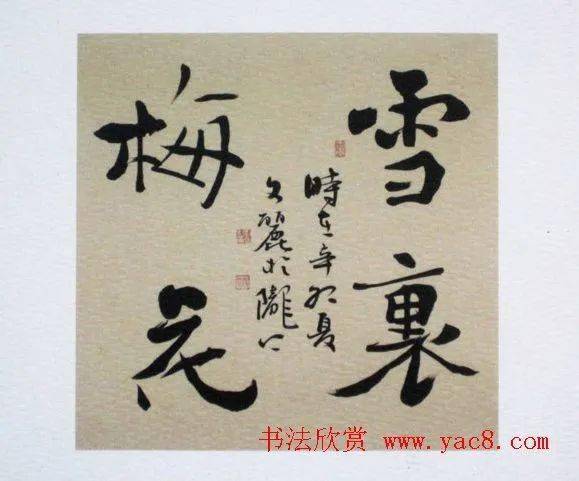 雪裏
梅花
時在辛卯夏
文麗於隴上
书法欣赏 www.yac8.com